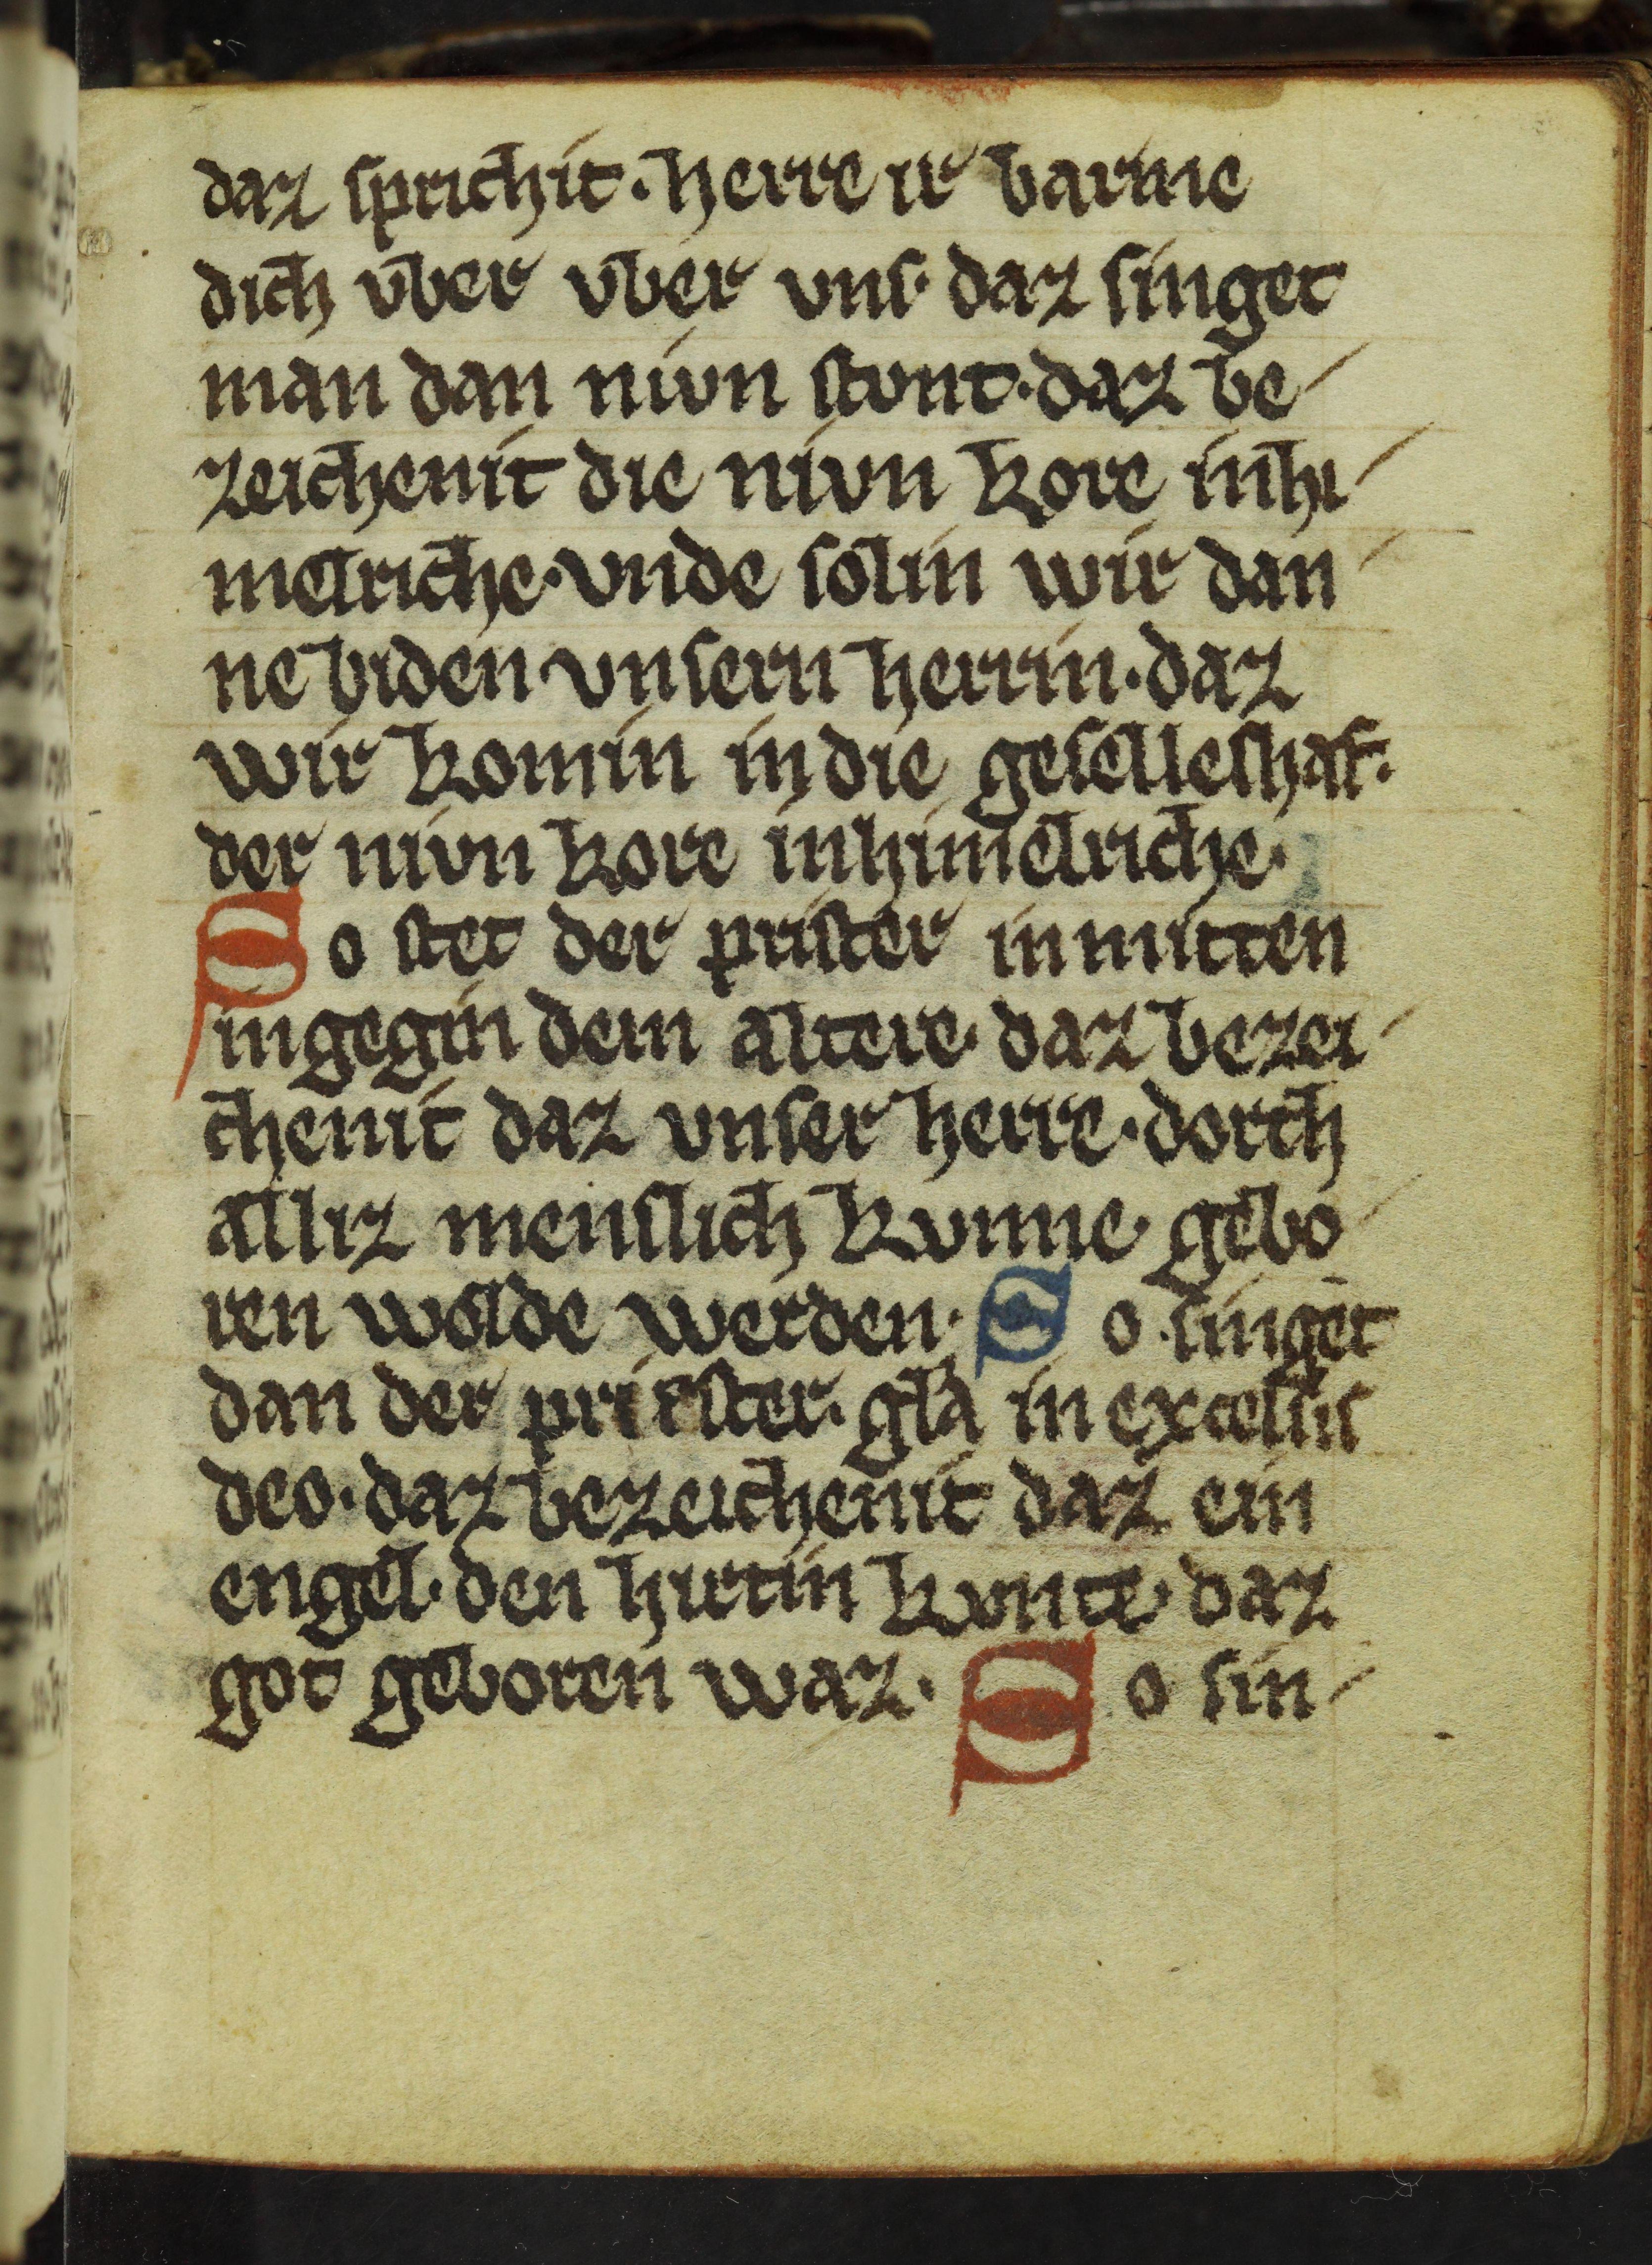 daz sprichit · herre ir barme
dich vber vber vns · daz singet
man dan nivn stvnt · daz be
zeichenit die nivn kore in hi
melriche · vnde solin wir dan
ne biden vnsern herrin · daz
wir komin in die geselleshaf ·
der nivn kore in himelriche ·
So stet der prister in mitten
ingegin dem altere · daz bezei
chenit daz vnser herre · dorch
alliz menslich kvnne · gebo
ren wolde werden · So singet
dan der priester · gla in excelsis
deo · daz bezeichenit daz ein
engel · den hirtin kvnte · daz
got geboren waz · So sin